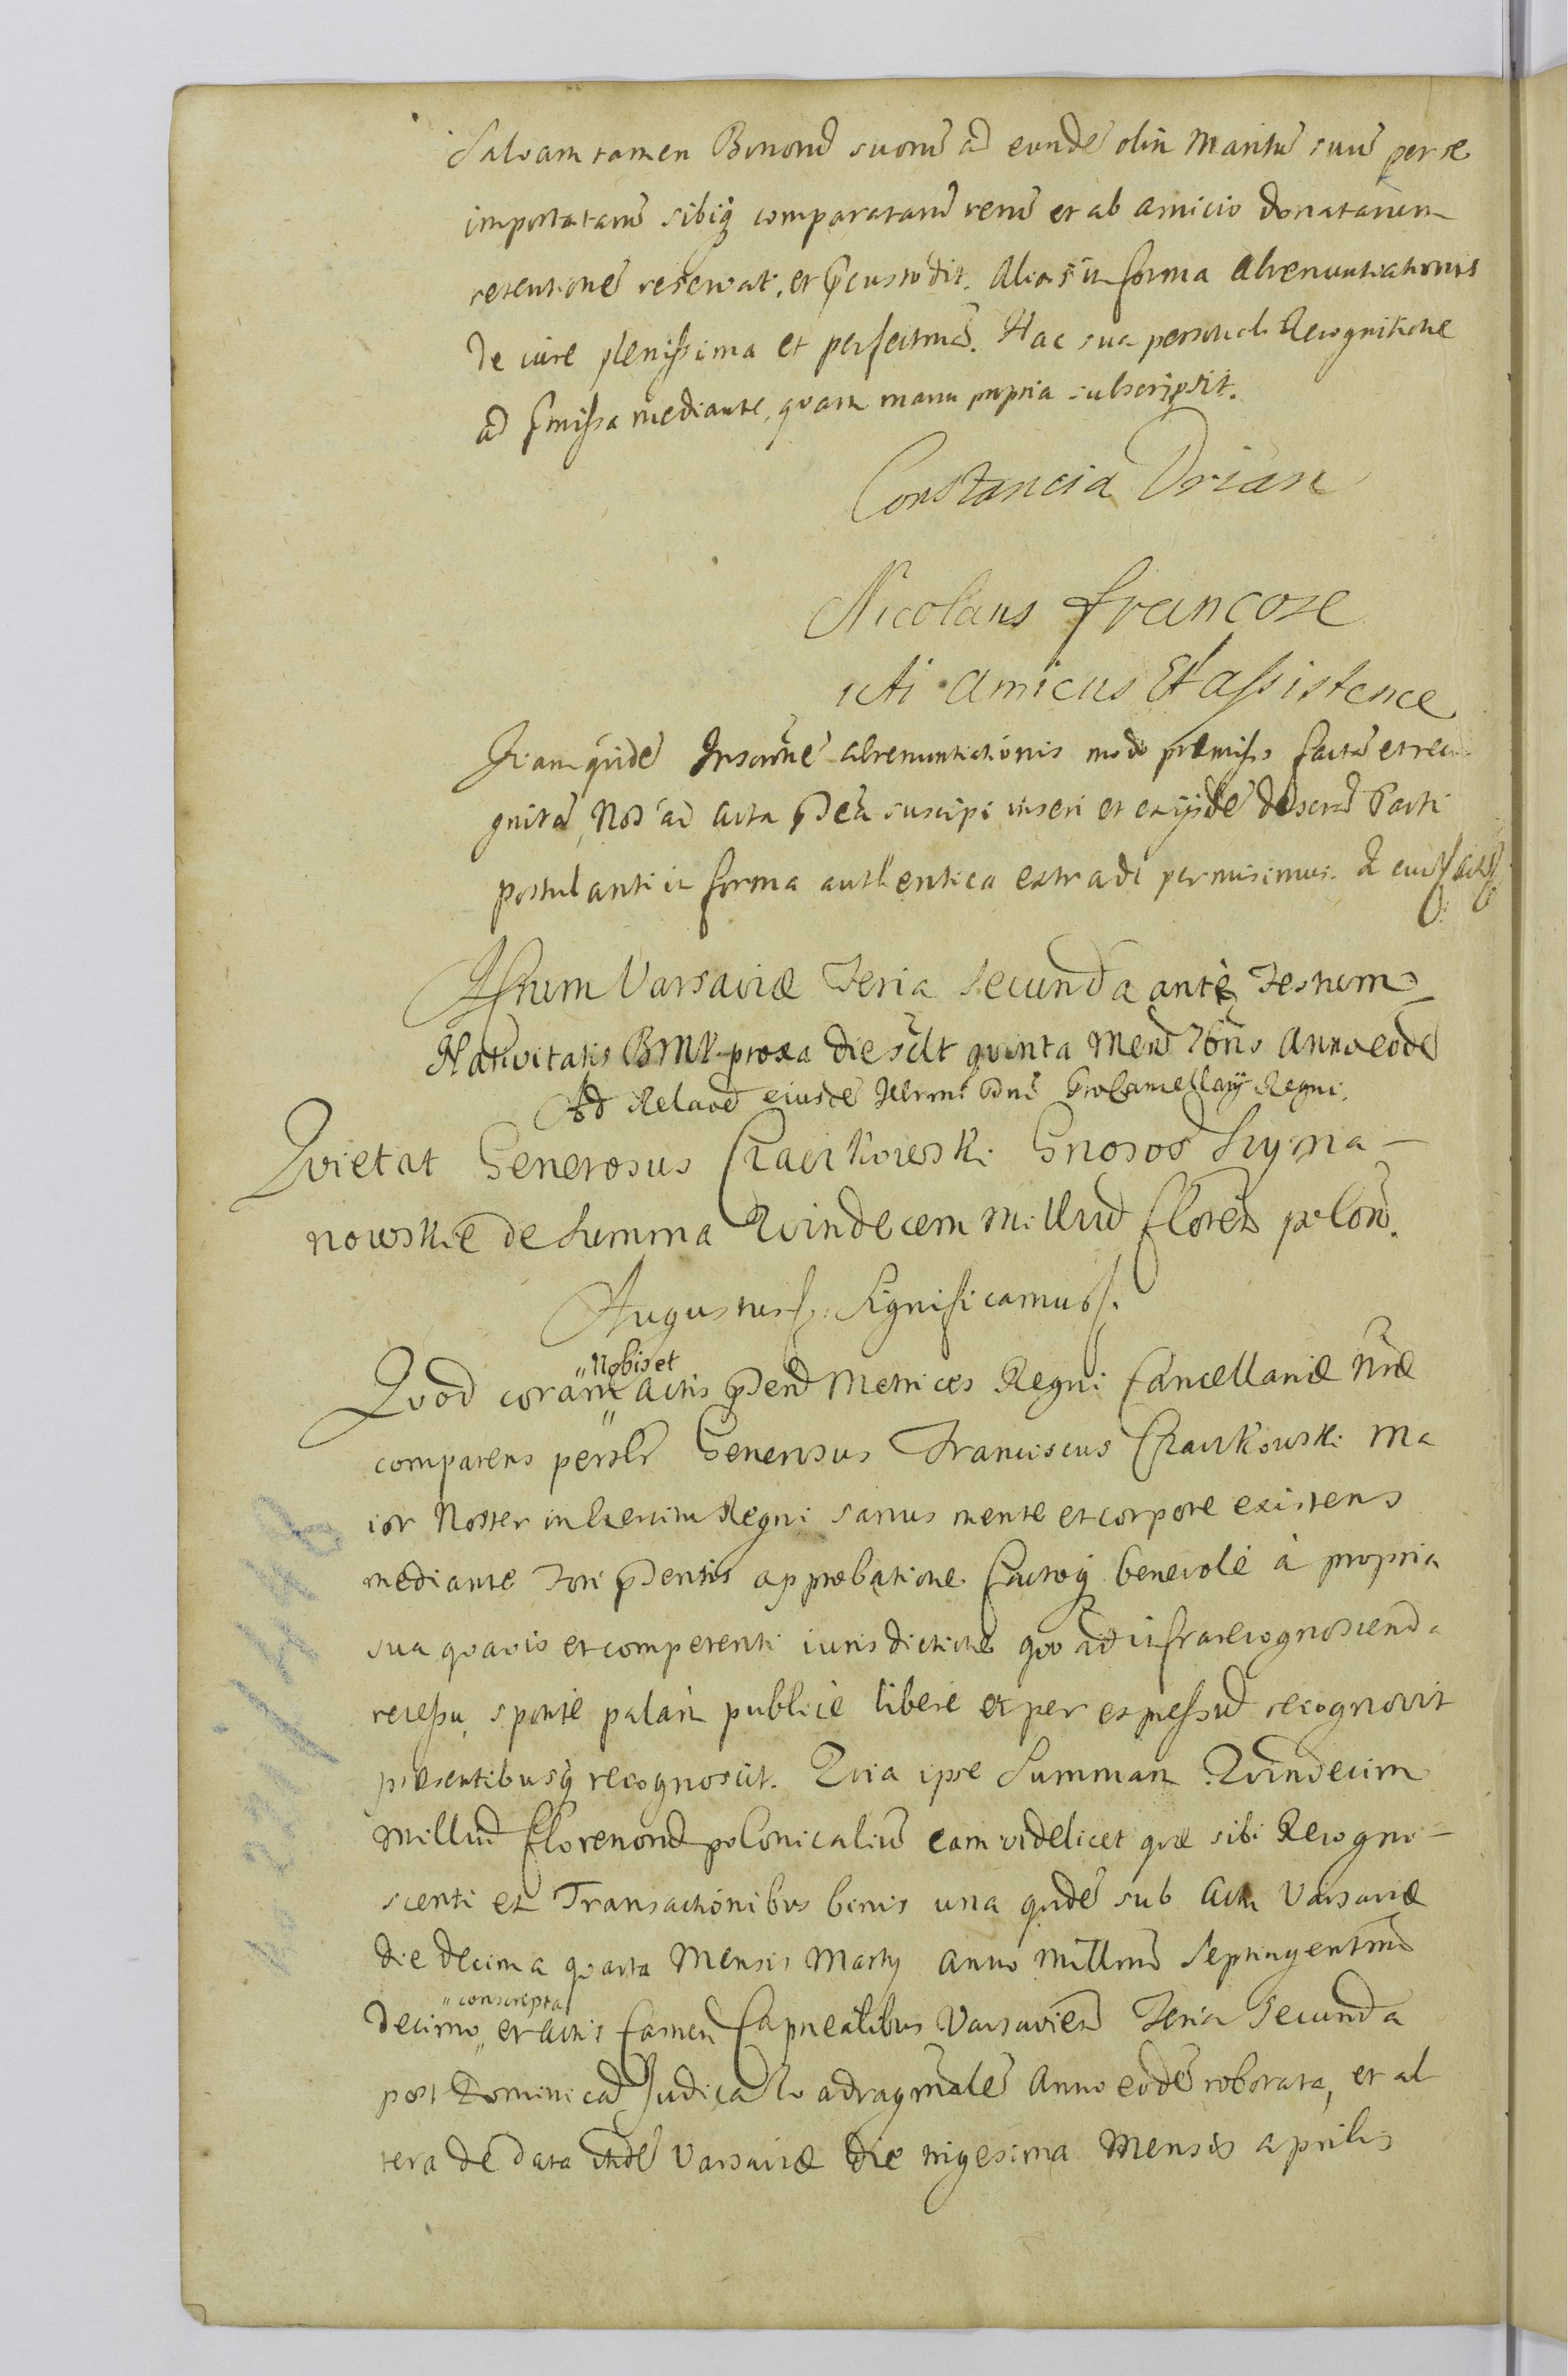 Salvam tamen Bonorũ suorũ ad eundẽ olim Maritũ suũ per se
importatarũ sibiq comparatarũ rerũ et ab amicis donatarum
retentionẽ reservat, et p̃custodit. Alias in forma abrenuntiationis
de iure plenissima et perfectima. Hac sua personali Recognitione
ad pmissa mediante, quam manu propria subscripsit.
Constancia Drian
Nicolaus francose
uti amicus Et assistence
Quam quidẽ Inscrõnẽ abrenuntiationis modo præmisso factã et reco
gnitã, Nos ad Acta p̃ñta suscipi inseri et ex ijsdẽ descrõ Parti
postulanti in forma authentica extradi permisimus. In cuius
Actum Varsaviæ Feria Secunda ante Festum
Nativitatis BMV proxa die sclt quinta Mens 7bris Anno eodẽ
Ad Relaoẽ eiusdẽ Illrmi Dni ProCancellarij Regni.
Quietat Generosus Czaczkowski Gnosos Szyma-
nowskie de Summa Quindecem Milliũ floren polon.
Augustus Significamus
Quod coram "Nobis et" Actis p̃ntibus Metrices Regni Cancellariæ Nræ
comparens persl̃r Generosus Franciscus Czaczkowski Ma
ior Noster in Exercitu Regni sanus mente et corpore existens
mediante Fori p̃sentis approbatione factoq benevolè à propria
sua quavis et competenti iurisdictione quo ad infrarecognoscenda
recessu, sponte palam publice libere et per expressũ recognovit
præsentibusq recognoscit. Quia ipse Summam Quindecim
Milliũ florenorũ polonicaliũ eam videlicet quæ sibi Recogno-
scenti ex Transactionibus binis una quidẽ sub Actu Varsaviæ
die decima quarta Mensis Martij Anno Millmo Septingentmo
decimo "conscripta" et Actis Castren Capnealibus Varsavien Feria Secunda
post Dominicã Judica Quadragmalẽ Anno eodẽ roborata, et al
tera de data itidẽ Varsaviæ die trigesima Mensis aprilis